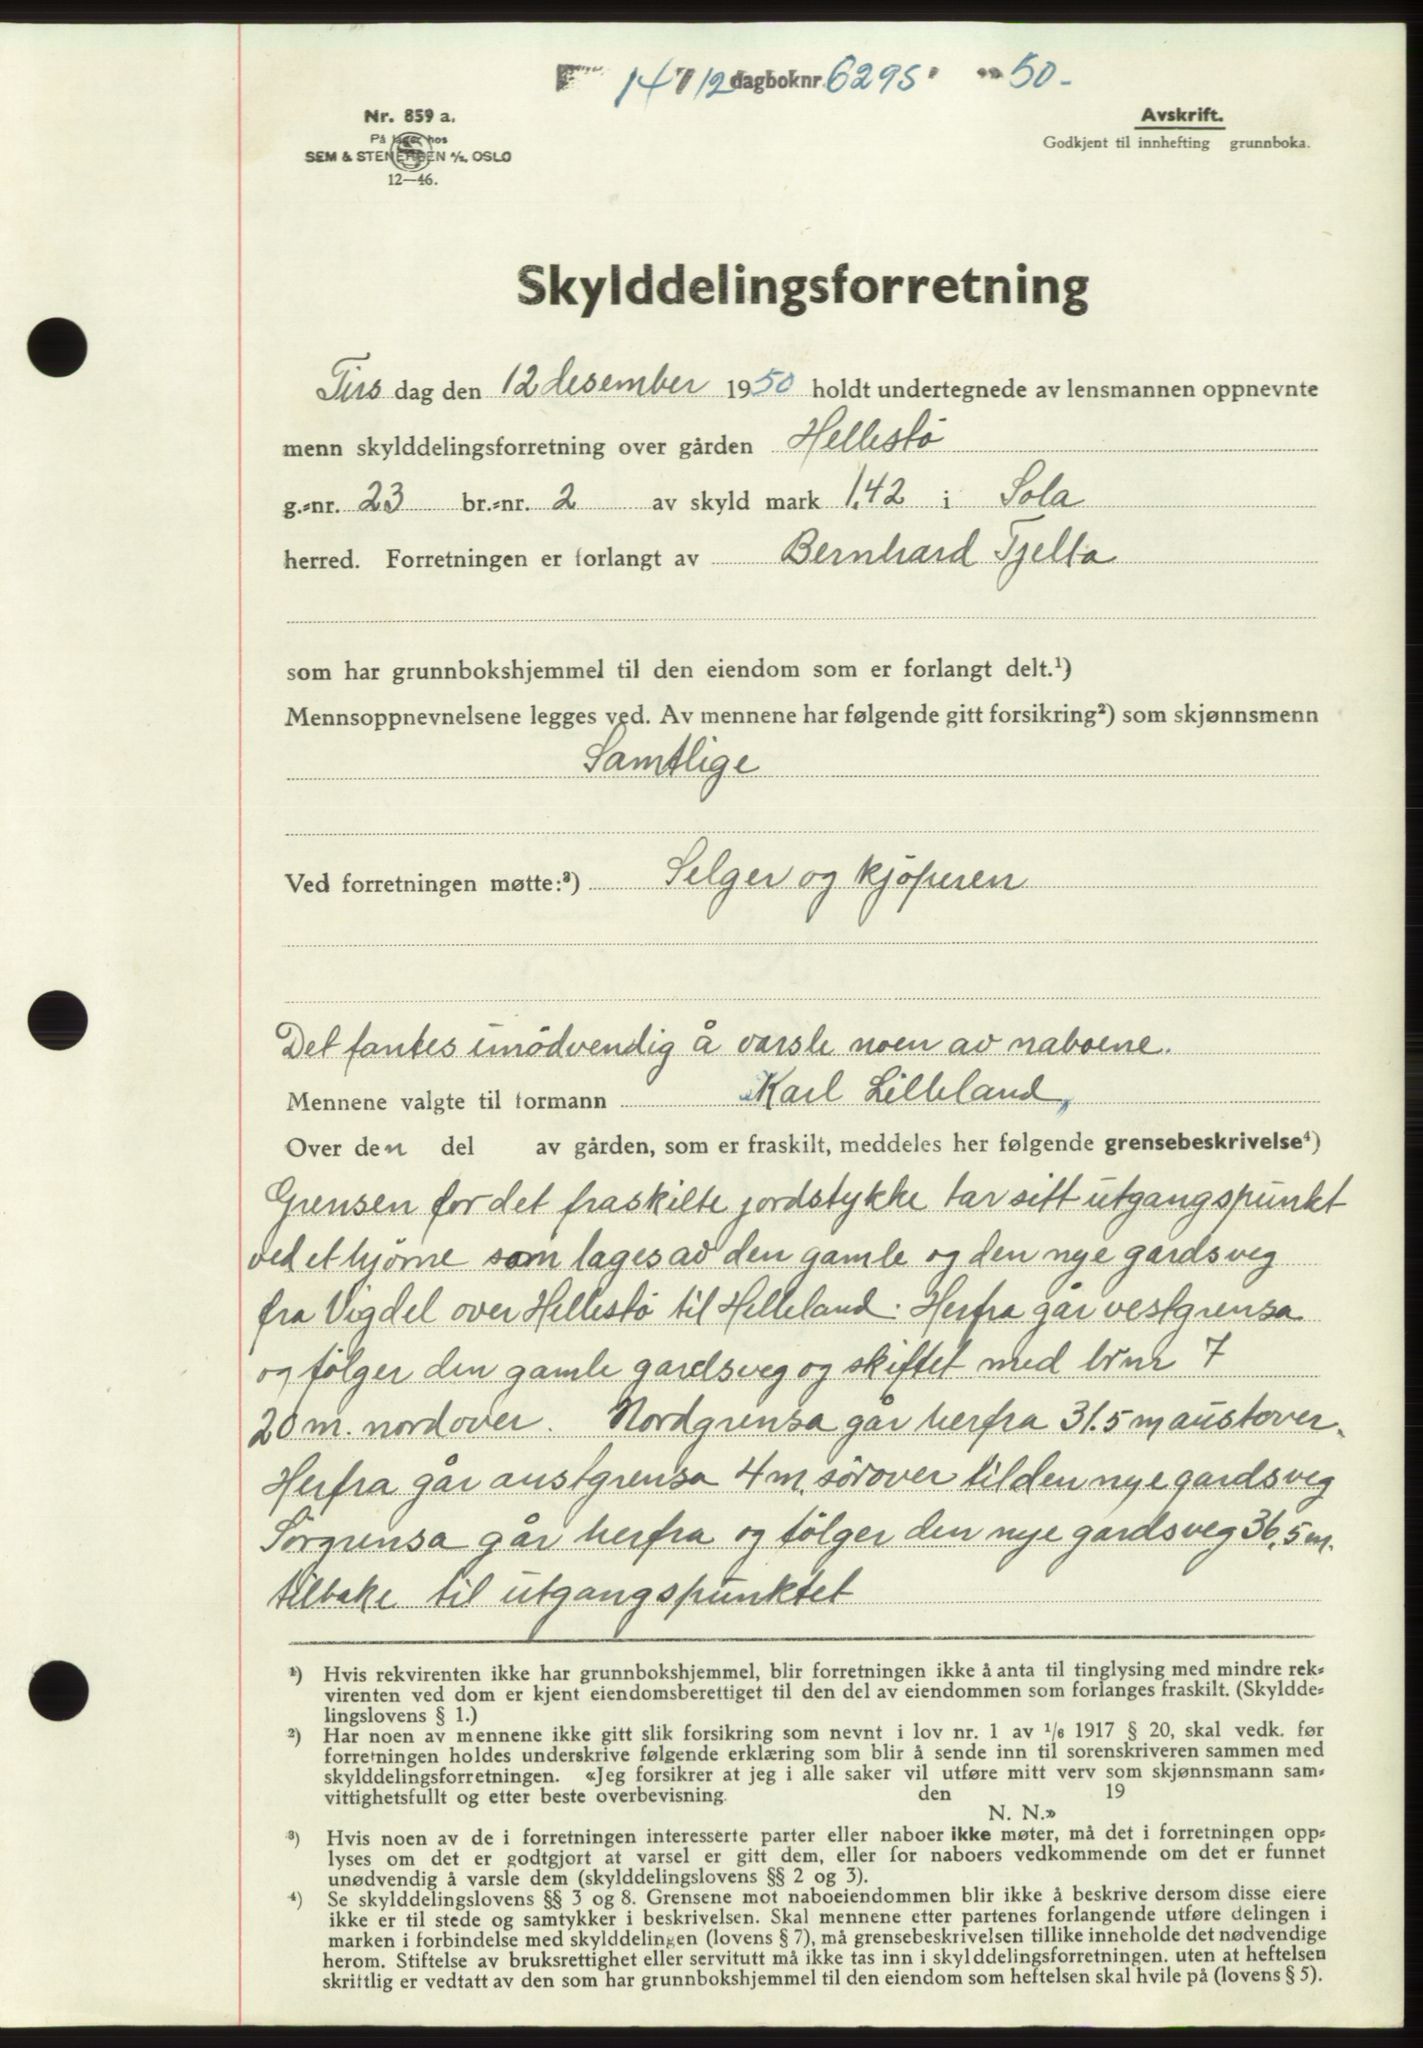 14/12 dagboknr. 6295 50.
Nr. 859 a.
På lager hos
SEM & STENERSEN A/S, OSLO
12—46.
Avskrift.
Godkjent til innhefting grunnboka.
Skylddelingsforretning
Tirs dag den 12 desember 1950 holdt undertegnede av lensmannen oppnevnte
menn skylddelingsforretning over gården Hellestö
g.-nr. 23 br.-nr. 2 av skyld mark 1,42 i Sola
herred. Forretningen er forlangt av Bernhard Tjelta
som har grunnbokshjemmel til den eiendom som er forlangt delt.¹)
Mennsoppnevnelsene legges ved. Av mennene har følgende gitt forsikring²) som skjønnsmenn
Samtlige
Ved forretningen møtte:³) Selger og kjöperen
Det fantes unödvendig å varsle noen av naboene.
Mennene valgte til formann Karl Lilleland,
Over den del av gården, som er fraskilt, meddeles her følgende grensebeskrivelse⁴)
Grensen for det fraskilte jordstykke tar sitt utgangspunkt
ved et hjörne som lages av den gamle og den nye gardsveg
fra Vigdel over Hellestö til Helleland. Herfra går vestgrensa
og fölger den gamle gardsveg og skiftet med br nr 7
20 m. nordover. Nordgrensa går herfra 31.5 m austover.
Herfra går austgrensa 4 m. sörover til den nye gardsveg
Sörgrensa går herfra og fölger den nye gardsveg 36,5 m.
tilbake til utgangspunktet
¹) Hvis rekvirenten ikke har grunnbokshjemmel, blir forretningen ikke å anta til tinglysing med mindre rek-
virenten ved dom er kjent eiendomsberettiget til den del av eiendommen som forlanges fraskilt. (Skyldde-
lingslovens § 1.)
²) Har noen av mennene ikke gitt slik forsikring som nevnt i lov nr. 1 av 1/6 1917 § 20, skal vedk. før
forretningen holdes underskrive følgende erklæring som blir å sende inn til sorenskriveren sammen med
skylddelingsforretningen. «Jeg forsikrer at jeg i alle saker vil utføre mitt verv som skjønnsmann sam-
vittighetsfullt og etter beste overbevisning. den 19
N. N.»
³) Hvis noen av de i forretningen interesserte parter eller naboer ikke møter, må det i forretningen opp-
lyses om det er godtgjort at varsel er gitt dem, eller for naboers vedkommende om det er funnet
unødvendig å varsle dem (skylddelingslovens §§ 2 og 3).
⁴) Se skylddelingslovens §§ 3 og 8. Grensene mot naboeiendommen blir ikke å beskrive dersom disse eiere
ikke er til stede og samtykker i beskrivelsen. Skal mennene etter partenes forlangende utføre delingen i
marken i forbindelse med skylddelingen (lovens § 7), må grensebeskrivelsen tillike inneholde det nødvendige
herom. Stiftelse av bruksrettighet eller servitutt må ikke tas inn i skylddelingsforretningen. uten at heftelsen
skriftlig er vedtatt av den som har grunnbokshjemmel til den eiendom som heftelsen skal hvile på (lovens § 5).